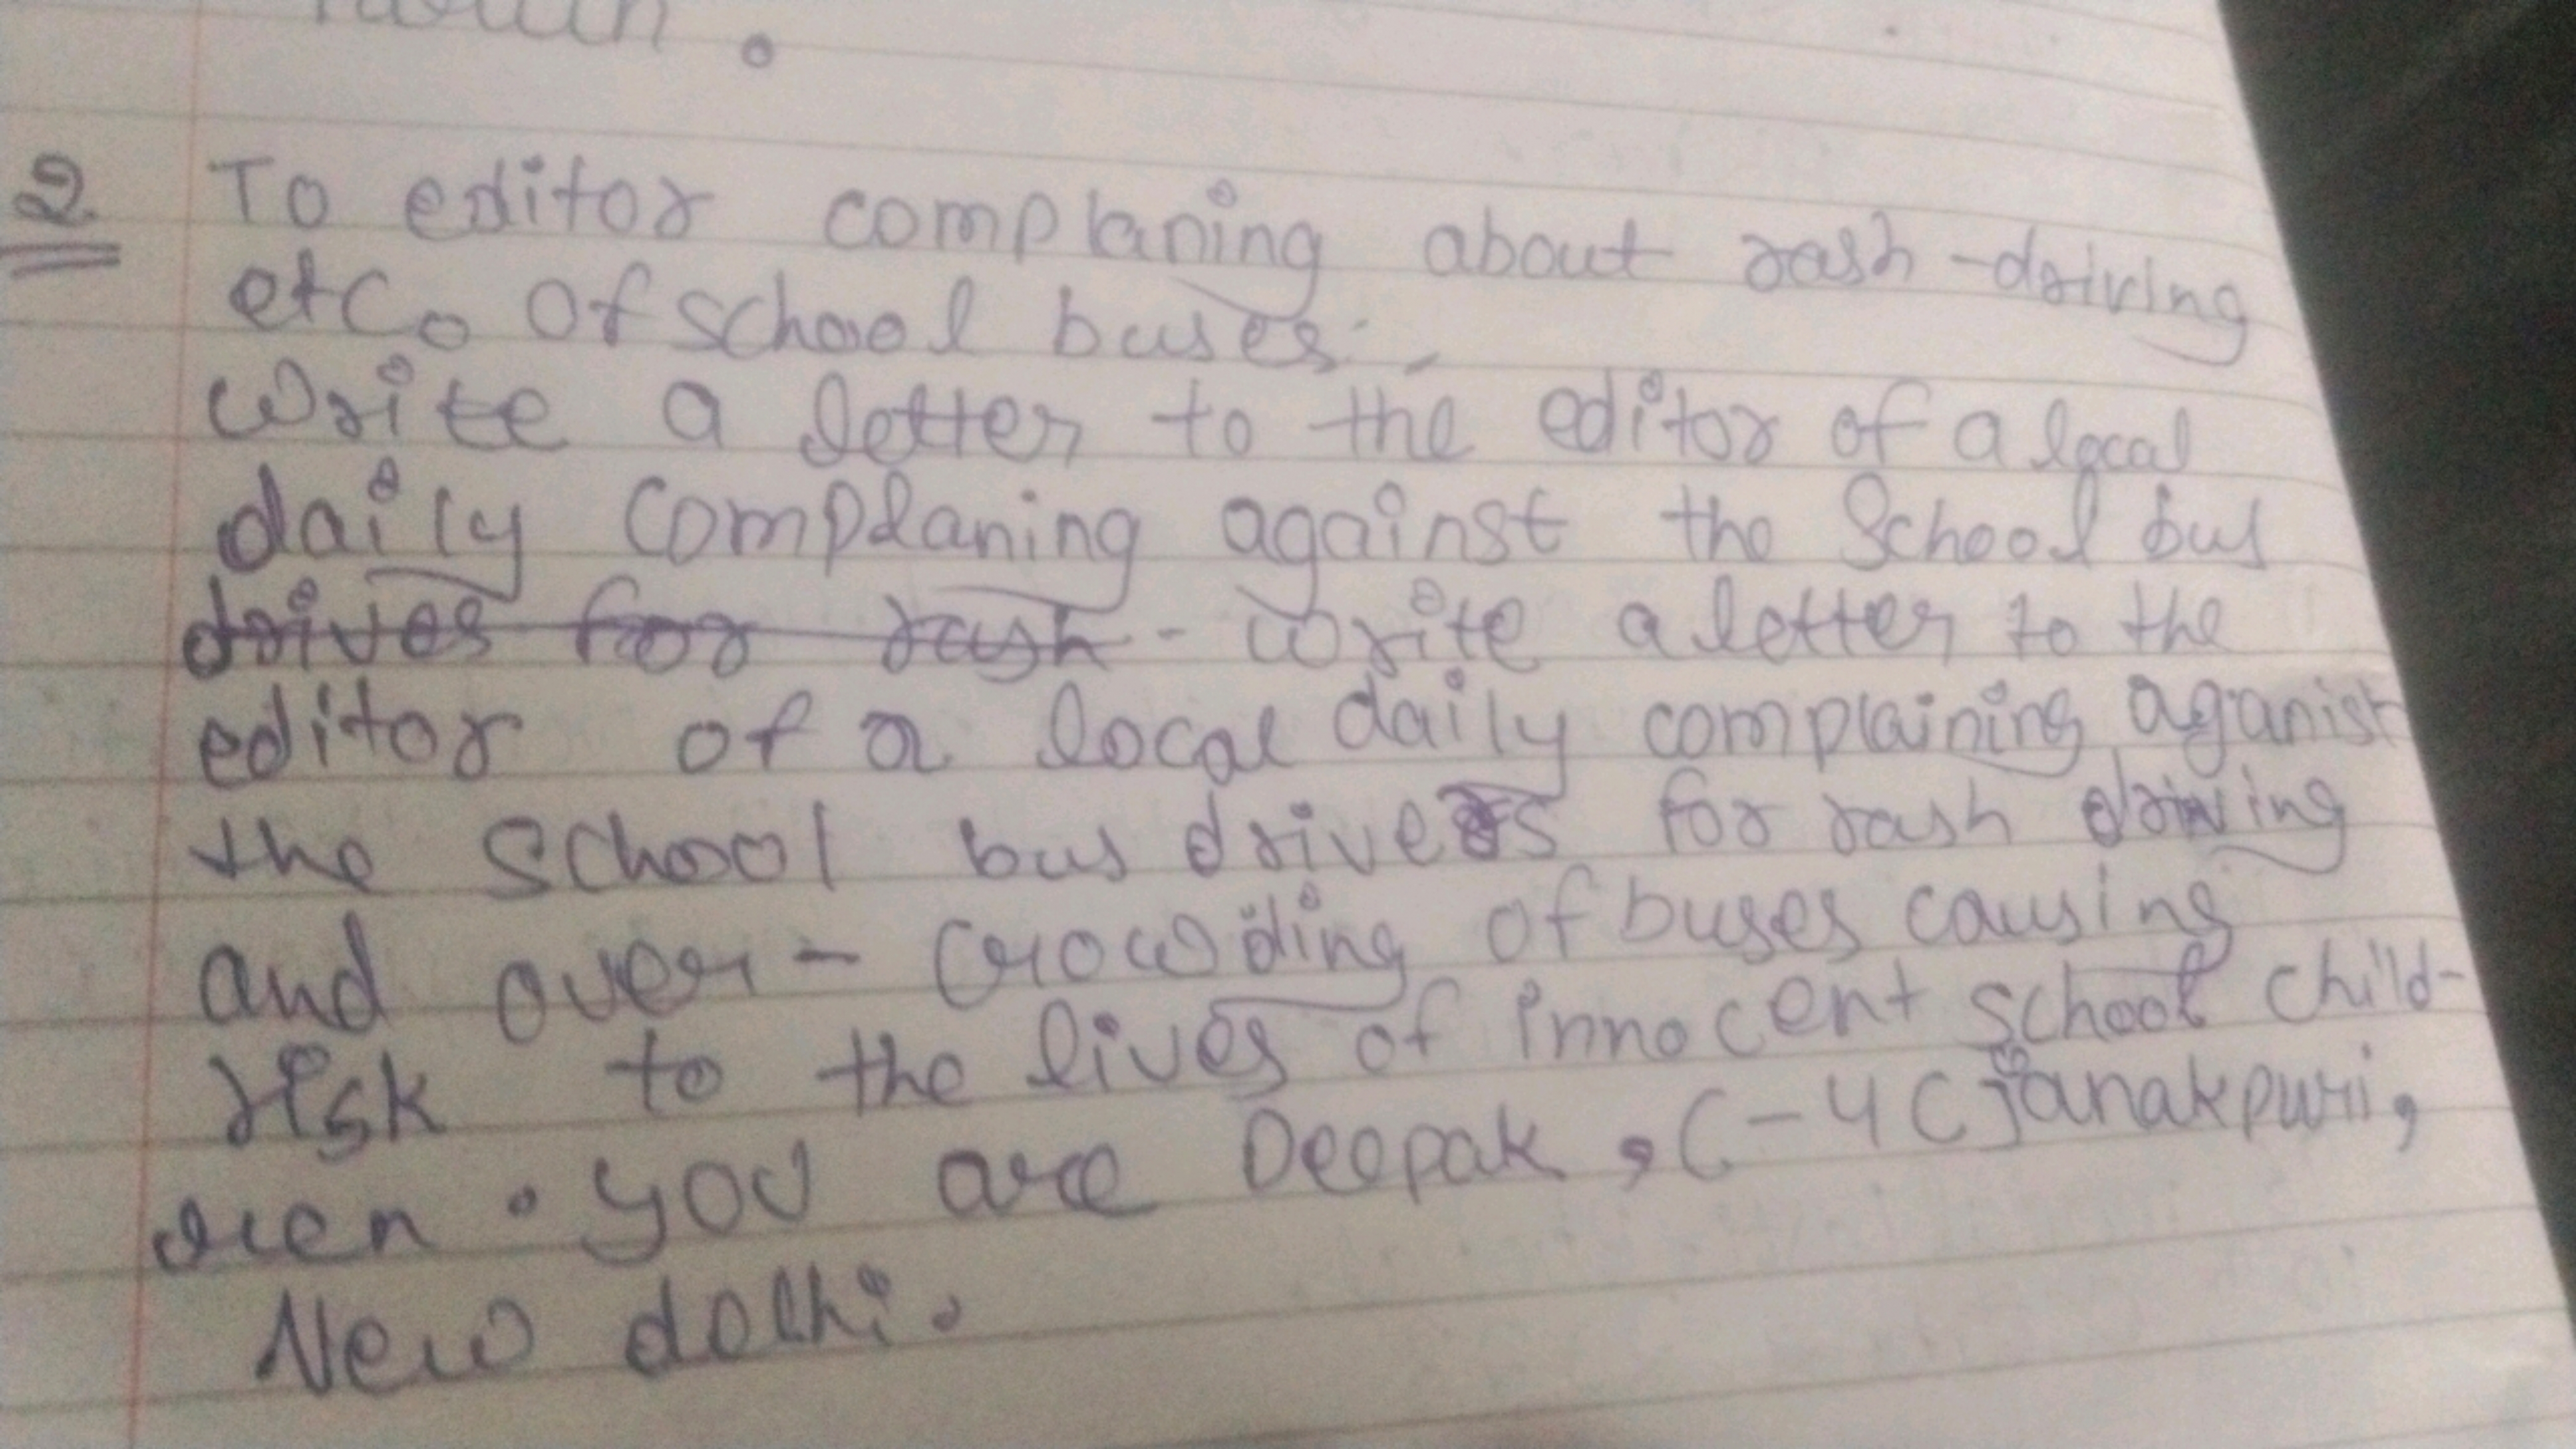 2 To editor complaning about rash-driving
etc. of school buses.
Write a letter to the editor of a local
daily complaning against the School bus
drives for rash - write a letter to the
editor of a local daily complaining aganist
the School bus drivers for rash driving
and over-crowding of buses causing
risk to the lives of innocent school child-
ren. You are Deepak, C-4C Janakpuri,
New delhi.